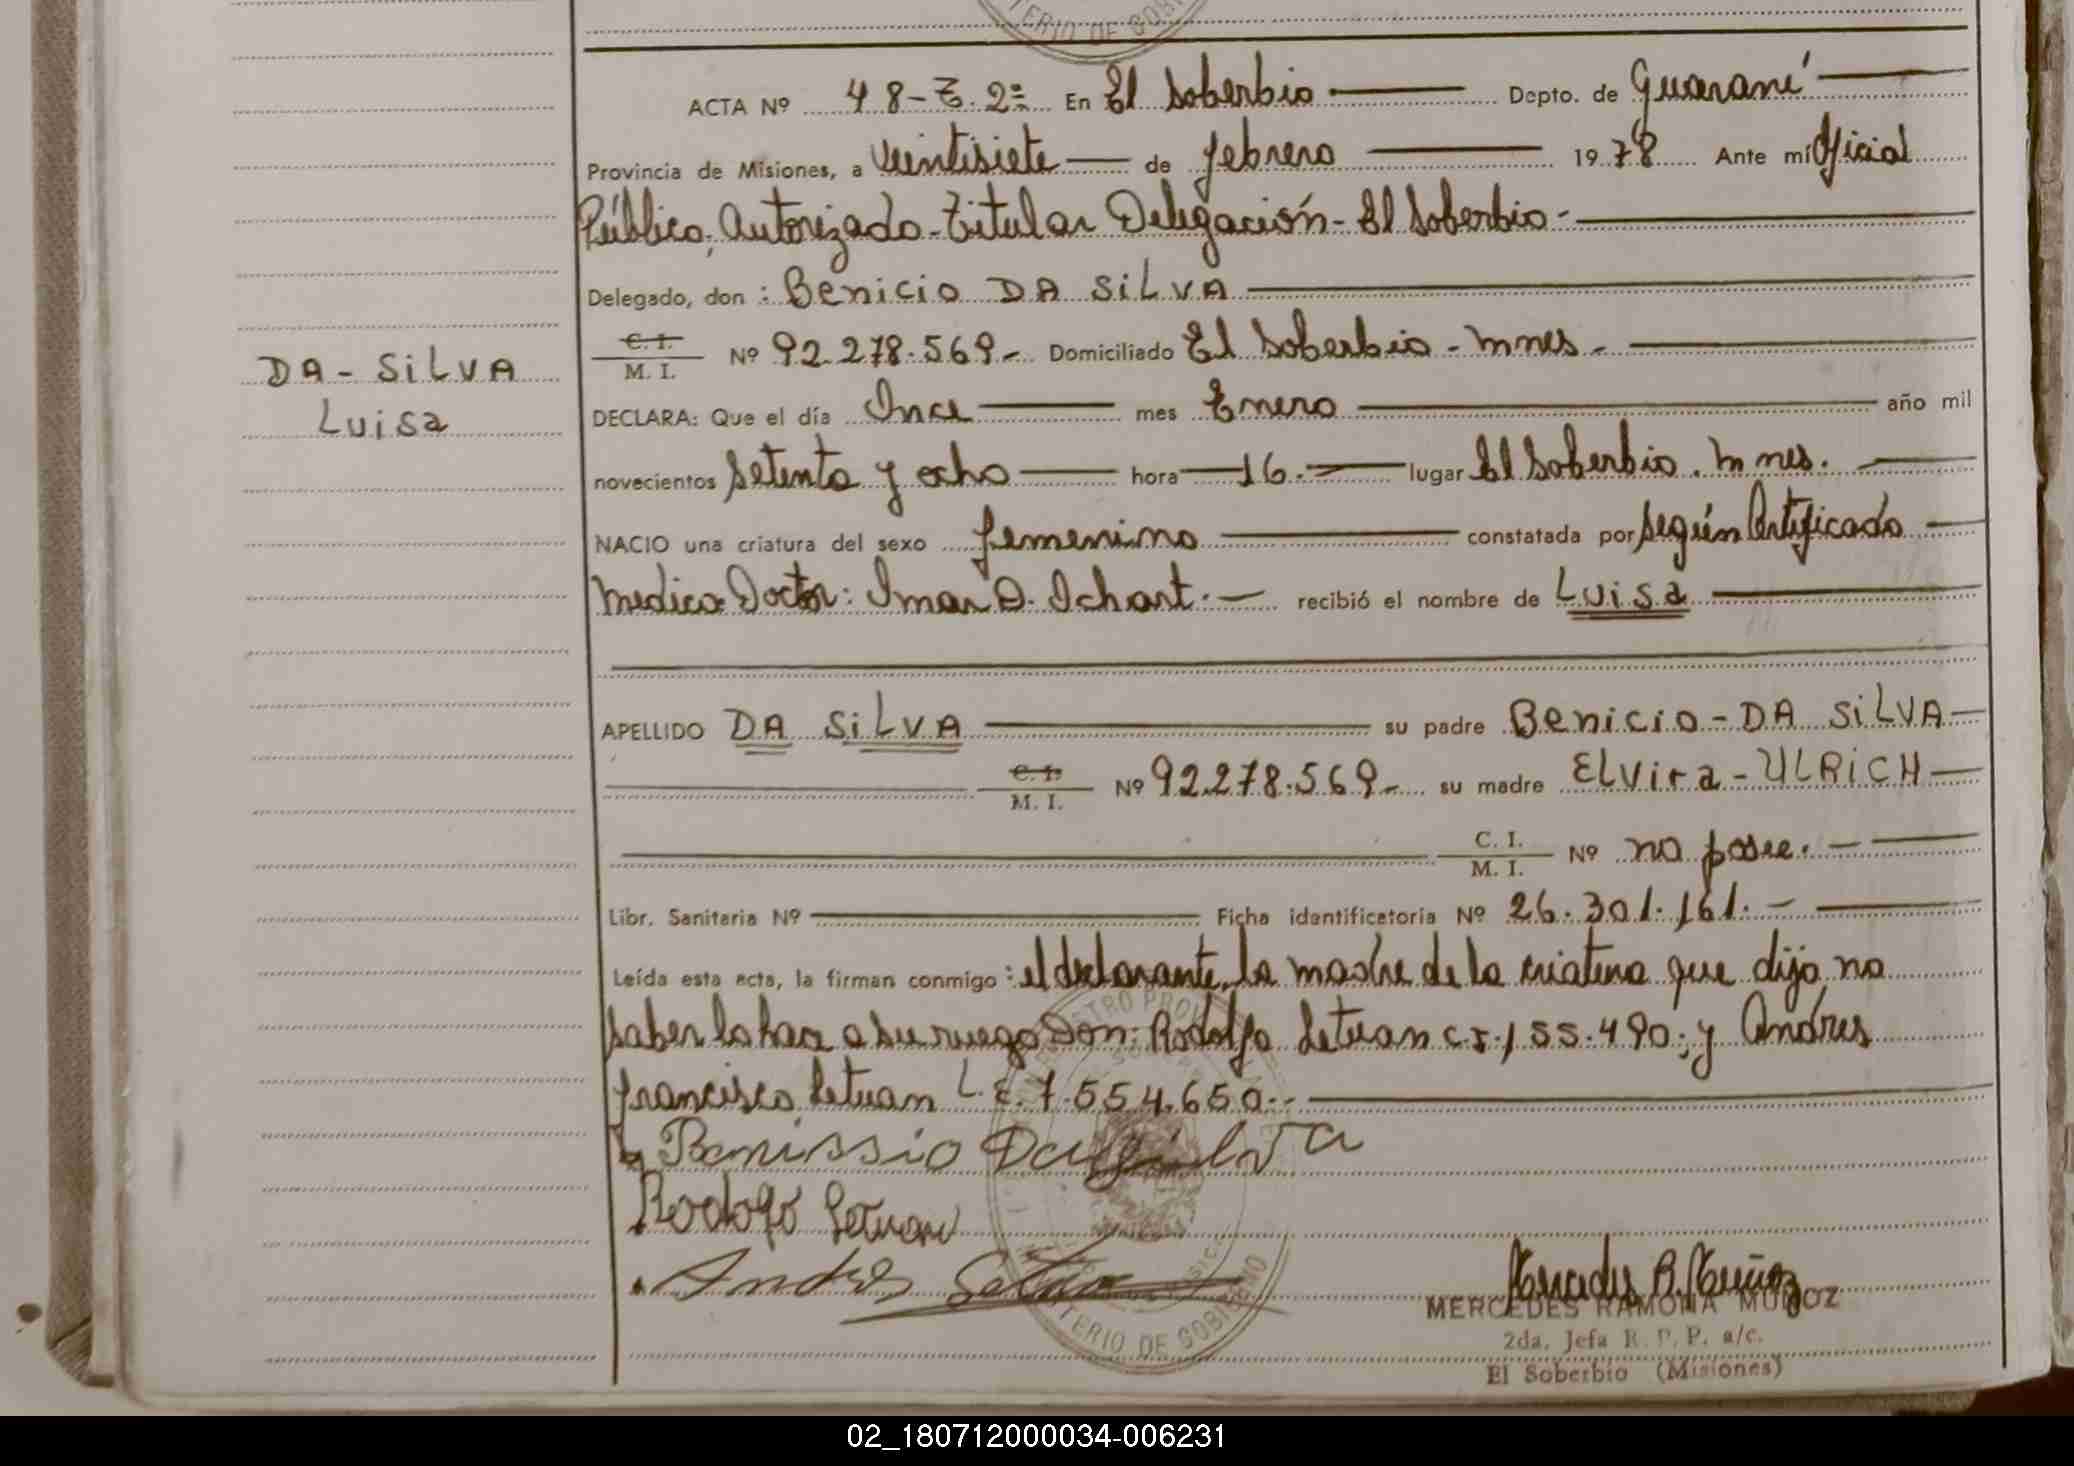 TERIO DE GOBI
ACTA Nº 48-T. 2º En El Soberbio Depto. de Guaraní
Provincia de Misiones, a veintisiete de febrero 19 78 Ante mí Oficial
Público, Autorizado-Titular Delegación-El Soberbio-
Delegado, don: Benicio DA SiLVA
C. I. / M. I. Nº 92.278.569- Domiciliado El Soberbio-Mnes-
DA-SiLVA
Luisa
DECLARA: Que el día Once mes Enero año mil
novecientos setenta y ocho hora 16.- lugar El Soberbio. Mnes.
NACIO una criatura del sexo femenino constatada por según Certificado
Medico Doctor: Omar O. Ichart.- recibió el nombre de Luisa
APELLIDO DA SiLVA su padre Benicio-DA SiLVA
C. I. / M. I. Nº 92.278.569- su madre ELvira-ULRiCH
C. I. / M. I. Nº no posee.-
Libr. Sanitaria Nº Ficha identificatoria Nº 26.301.161.-
Leída esta acta, la firman conmigo: el declarante, la madre de la criatura que dijo no
saber lo hace a su ruego Don: Rodolfo Setuan C.I. 155.490; y Andres
Francisco Setuan L.E. 7.554.650.-
Benissio Dasilva
Rodolfo Setuan
Andres Setuan
TERIO DE GOBIERNO
Mercedes R. Muñoz
MERCEDES RAMONA MUÑOZ
2da. Jefa R. P. P. a/c.
El Soberbio (Misiones)
02_180712000034-006231